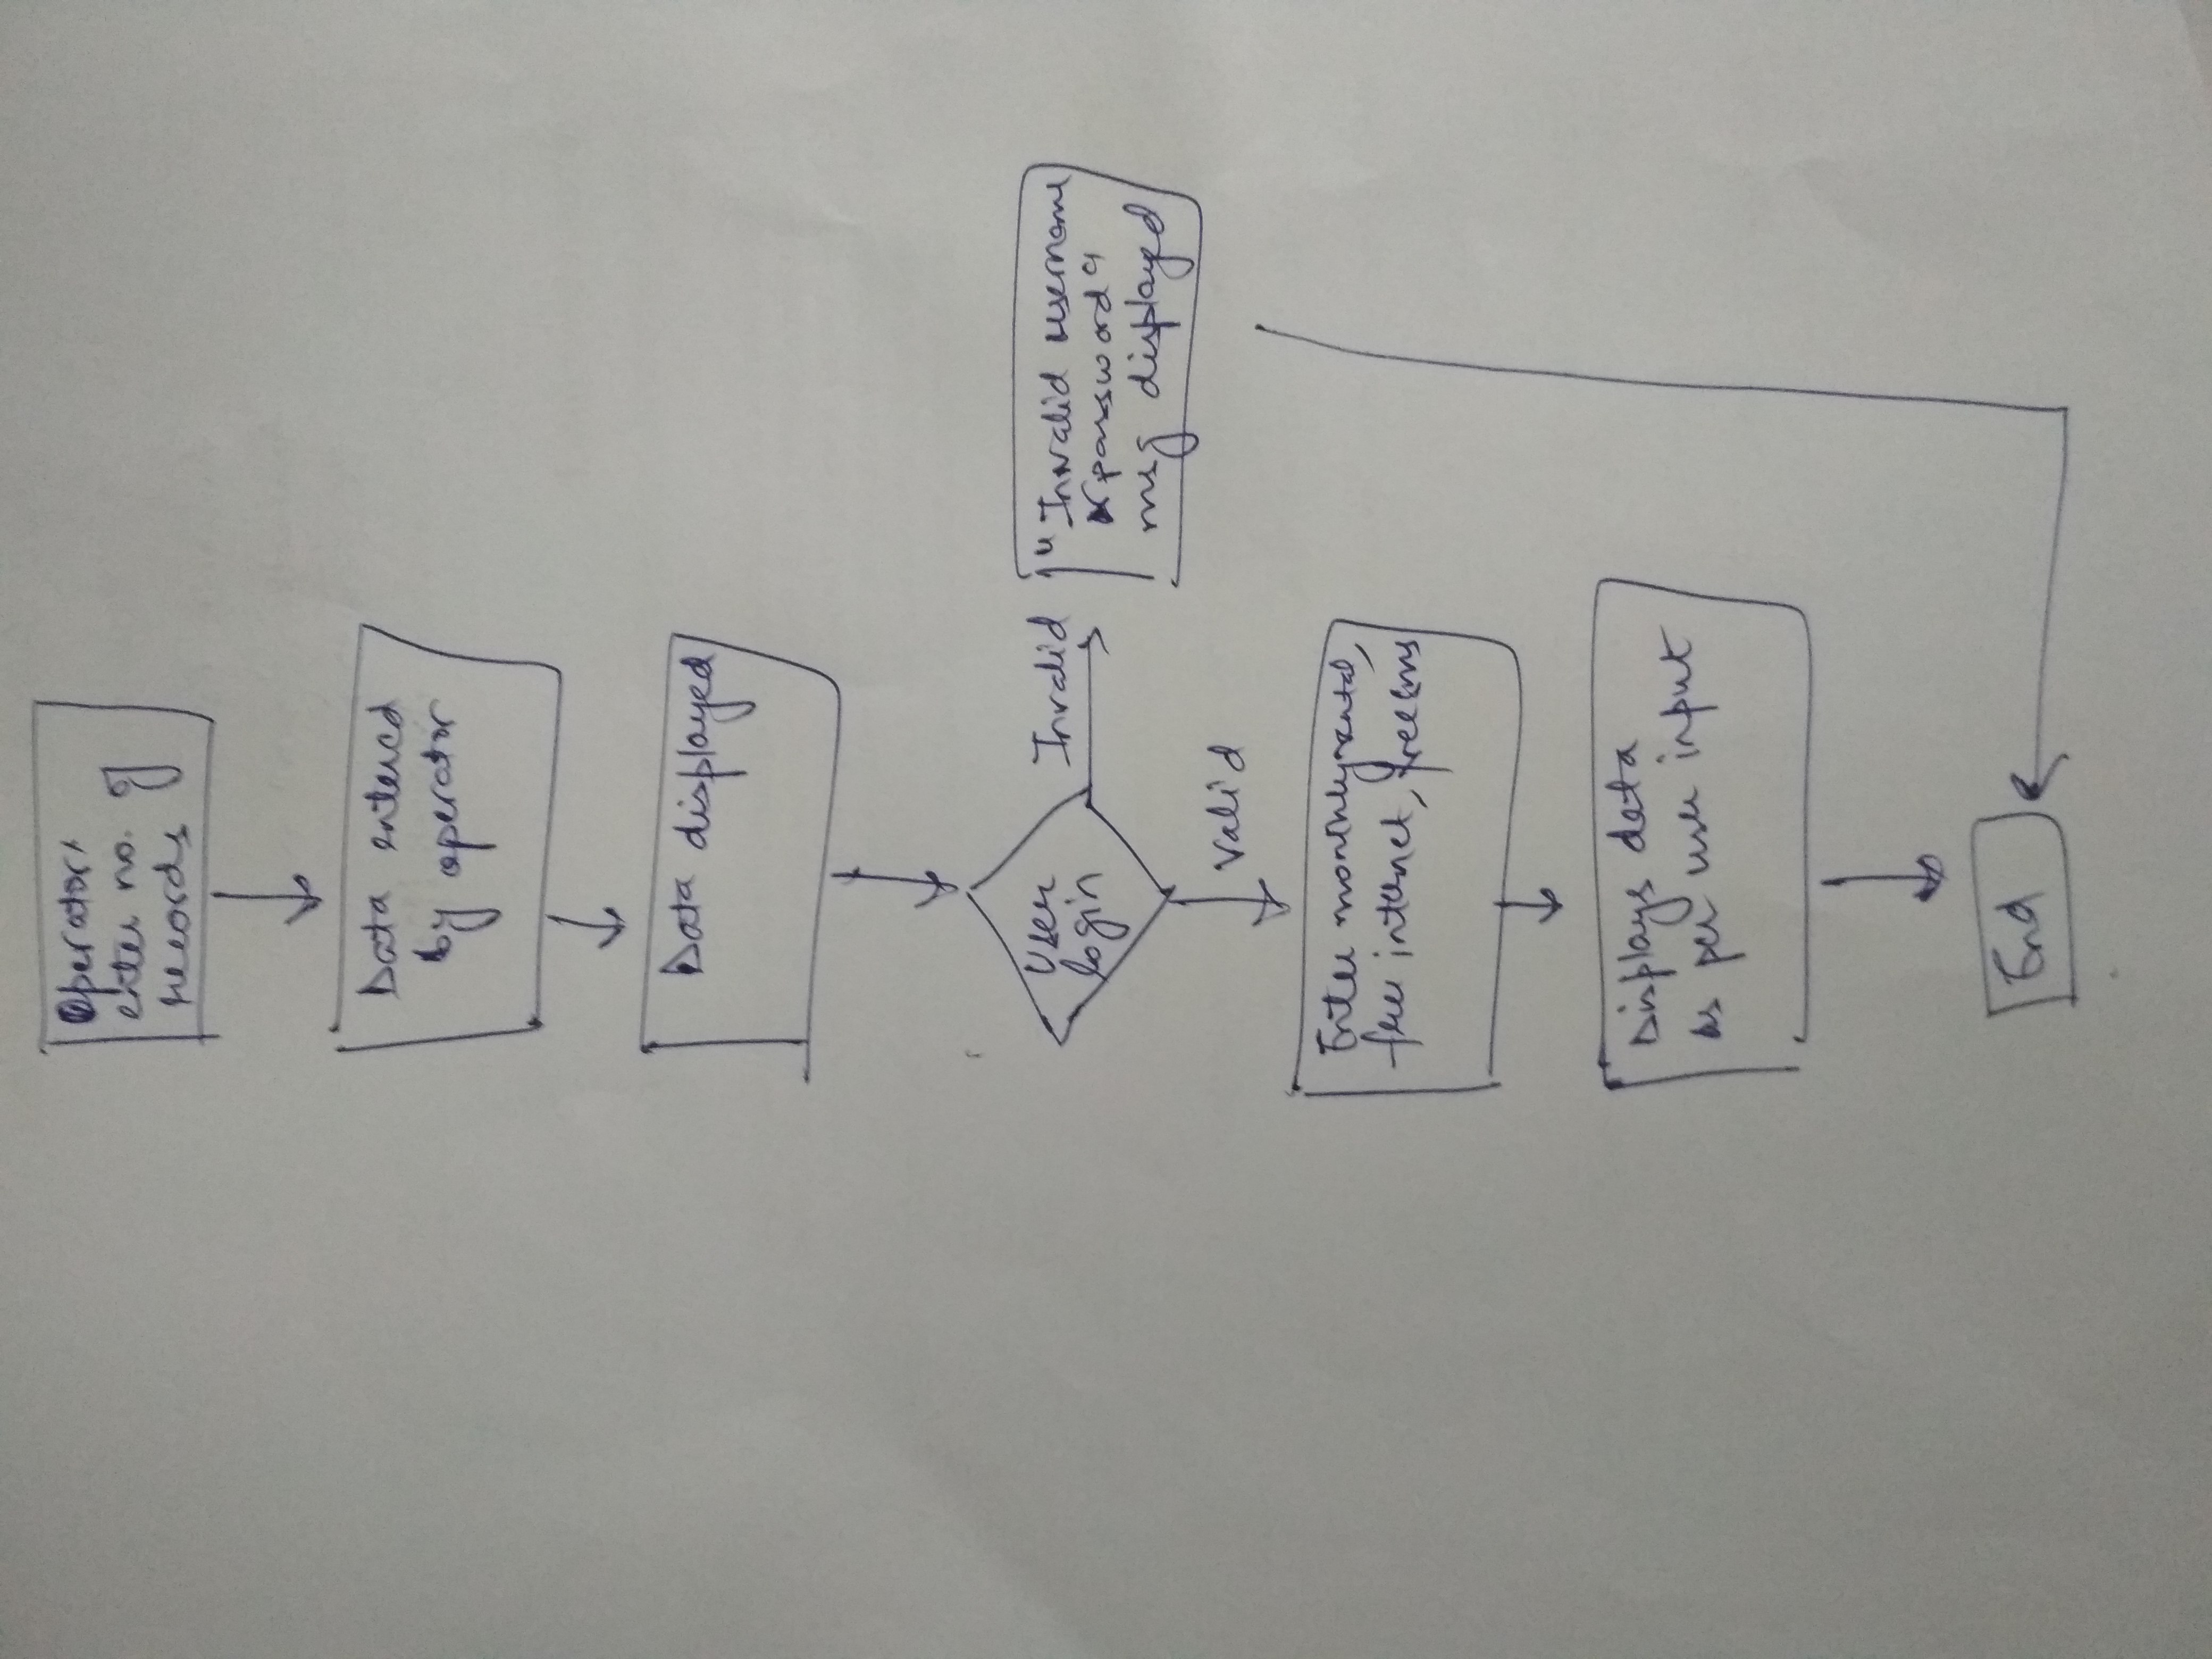 Operator:
enter no. of
records
Data entered
by operator
Data displayed
User
login
Invalid
"Invalid username
password"
msg displayed
Valid
Enter monthlyrental,
free internet, freelms
Displays data
as per use input
End